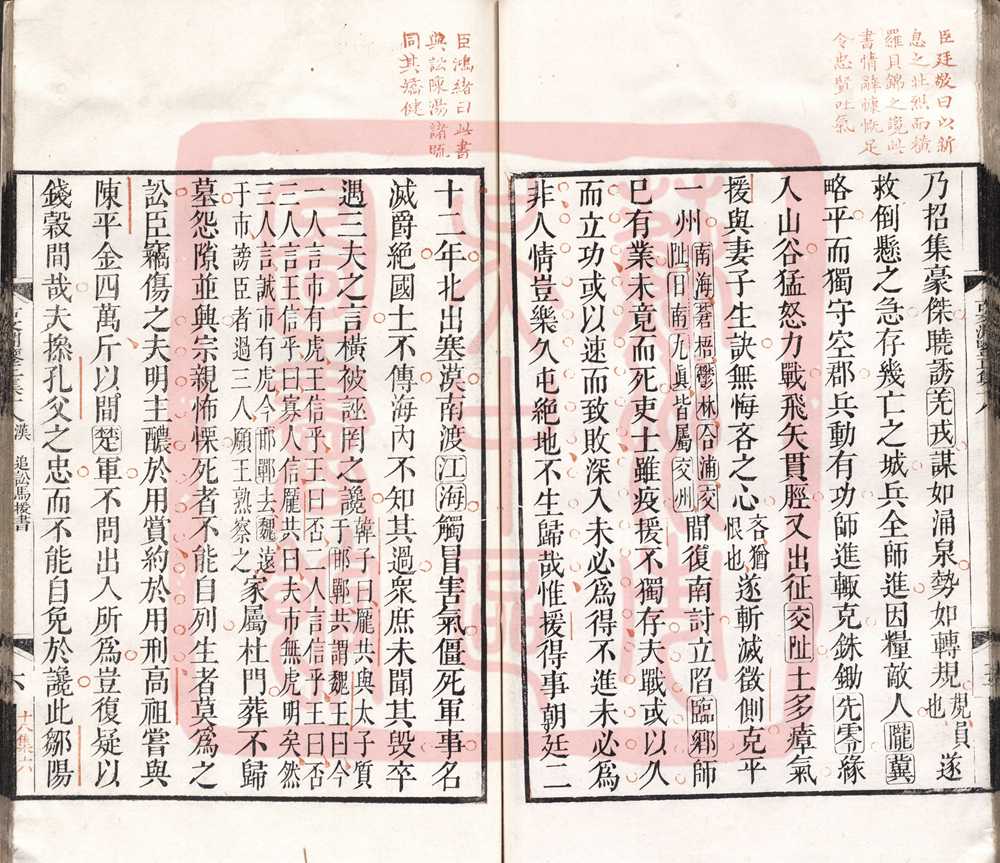 臣廷敬曰以新
息之壯烈而橫
羅貝錦之讒此
書情辭慷慨足
令忠賢吐氣
乃招集豪傑曉誘羌戎謀如涌泉勢如轉規規員也遂
救倒懸之急存幾亡之城兵全師進因糧敵人隴冀
略平而獨守空郡兵動有功師進輒克銖鋤先零緣
入山谷猛怒力戰飛矢貫脛又出征交阯土多瘴氣
援與妻子生訣無悔吝之心吝猶恨也遂斬滅徵側克平
一州南海蒼梧鬱林合浦交阯日南九眞皆屬交州間復南討立陷臨鄉師
已有業未竟而死吏士雖疫援不獨存夫戰或以久
而立功或以速而致敗深入未必爲得不進未必爲
非人情豈樂久屯絕地不生歸哉惟援得事朝廷二
臣鴻緒曰此書
與訟陳湯諸疏
同其矯健
十二年北出塞漠南渡江海觸冒害氣僵死軍事名
滅爵絕國土不傳海內不知其過衆庶未聞其毀卒
遇三夫之言橫被誣罔之讒韓子曰龐共與太子質于邯鄲共謂魏王曰今
一人言市有虎王信乎王曰否二人言信乎王曰否
三人言王信乎曰寡人信龐共曰夫市無虎明矣然
三人言誠市有虎今邯鄲去魏遠
于市謗臣者過三人願王熟察之家屬杜門葬不歸
墓怨隙並興宗親怖慄死者不能自列生者莫爲之
訟臣竊傷之夫明主醲於用賞約於用刑高祖嘗與
陳平金四萬斤以間楚軍不問出入所爲豈復疑以
錢穀間哉夫摻孔父之忠而不能自免於讒此鄒陽
漢
追訟馬援書